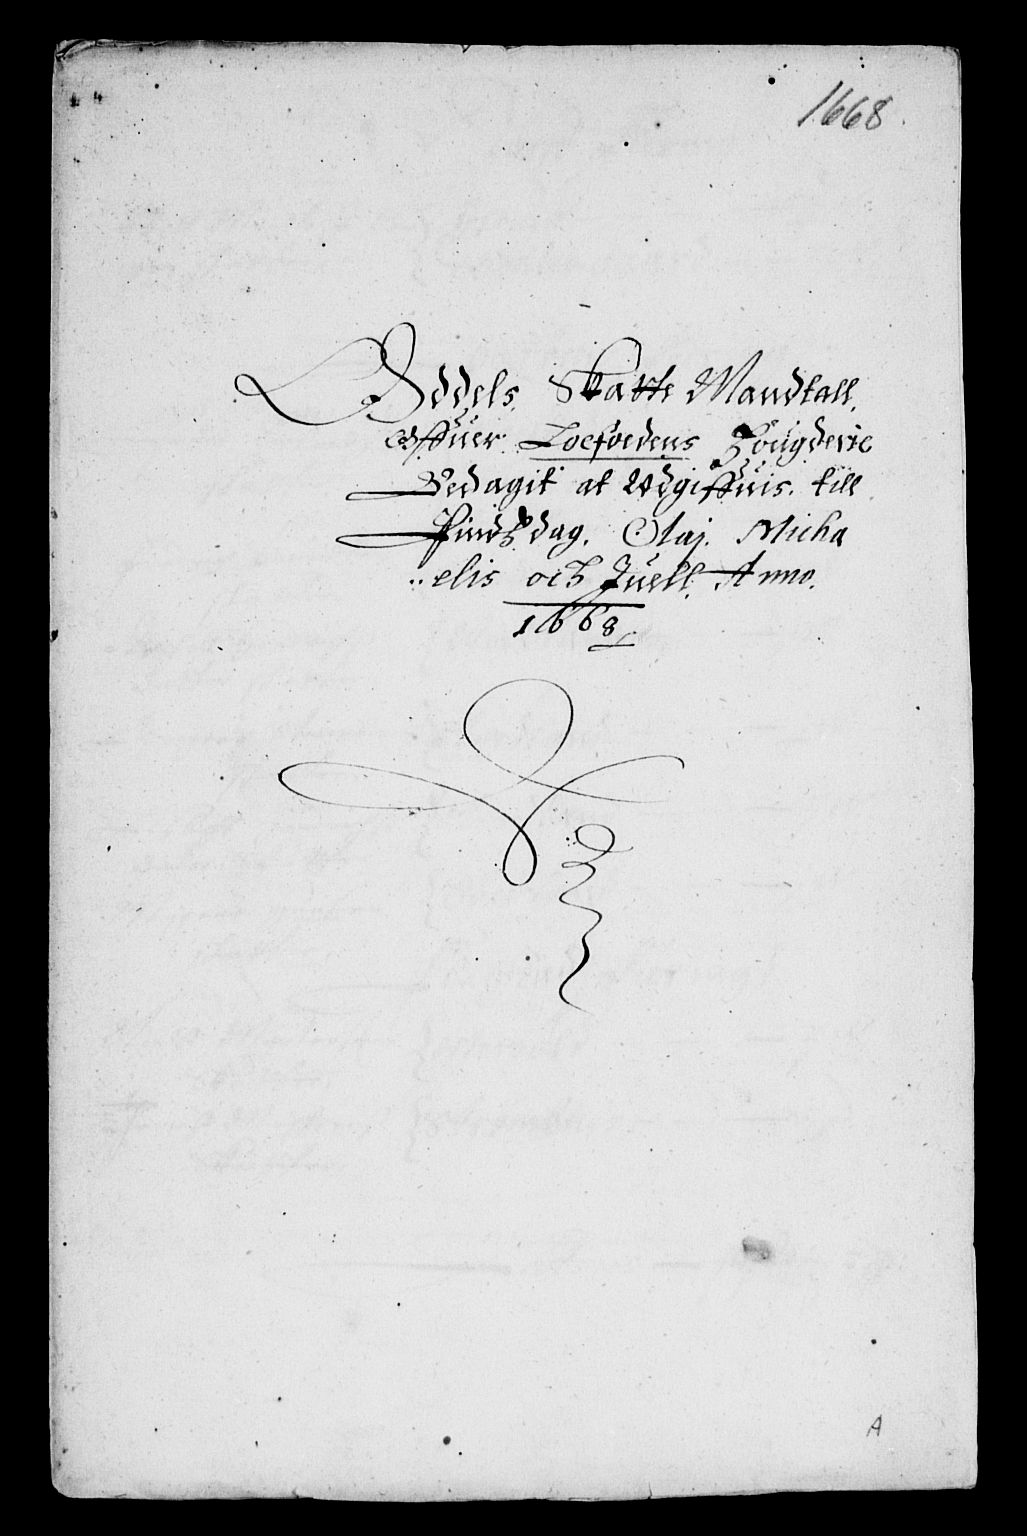 1668.
Oddels Skatte Mandtall
Offuer Loefoedens Fougderie
Bedagit at Udgiffuis till
Pindtzdag, Olaj, Micha
elis och Juell Anno.
1668
A